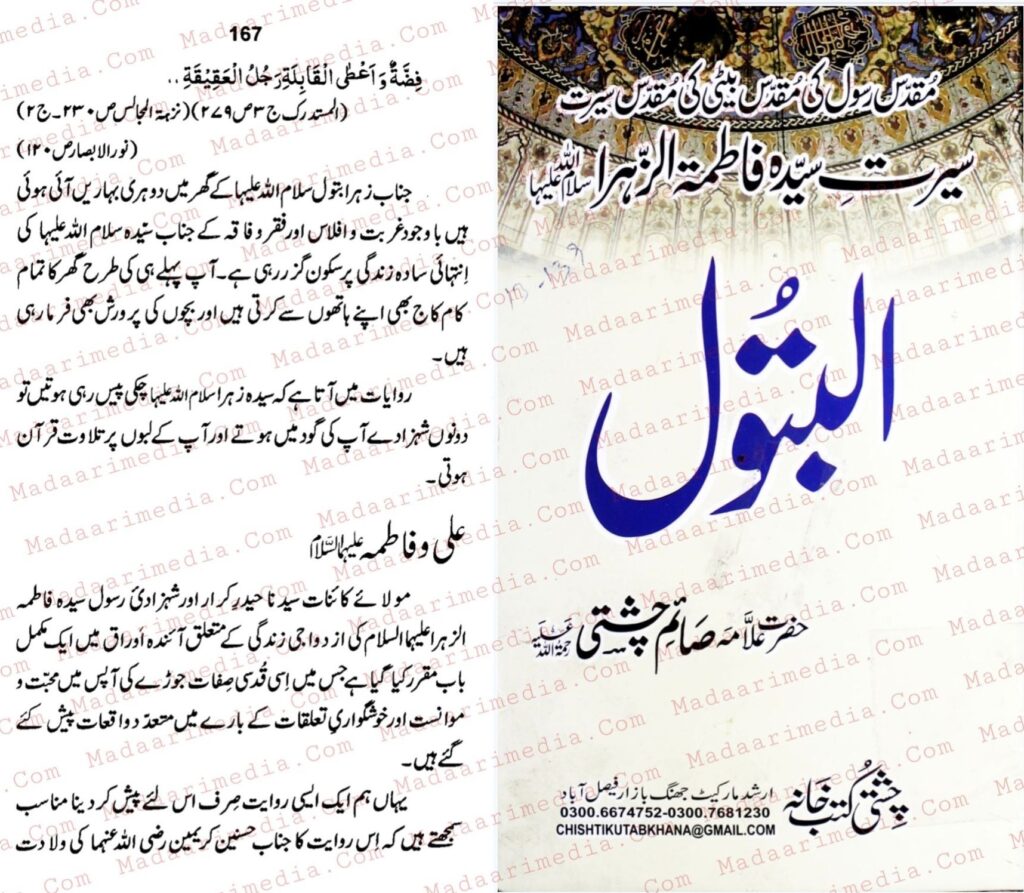 167
فِضَّةً وَاَعْطٰی الْقَابِلَةِ رَجُلُ الْعَقِیْقَةِ ..
(المستدرک ج ۳ ص ۲۷۹)(نزہتہ المجالس ص ۲۳۰۔ ج ۲)
(نور الابصار ص ۱۲۰)
جناب زہرا بتول سلام اللہ علیہا کے گھر میں دوہری بہاریں آئی ہوئی
ہیں باوجود غربت و افلاس اور فقر و فاقہ کے جناب سیّدہ سلام اللہ علیہا کی
اِنتہائی سادہ زندگی پر سکون گزر رہی ہے۔ آپ پہلے ہی کی طرح گھر کا تمام
کام کاج بھی اپنے ہاتھوں سے کرتی ہیں اور بچوں کی پرورش بھی فرما رہی
ہیں۔
روایات میں آتا ہے کہ سیدہ زہرا سلام اللہ علیہا چکی پیس رہی ہوتیں تو
دونوں شہزادے آپ کی گود میں ہوتے اور آپ کے لبوں پر تلاوت قرآن
ہوتی۔
علی و فاطمہ علیہما السّلام
مولائے کائنات سیدنا حیدر کرار اور شہزادیٔ رسول سیدہ فاطمہ
الزہرا علیہما السلام کی ازدواجی زندگی کے متعلق آئندہ اَوراق میں ایک مکمل
باب مقرر کیا گیا ہے جس میں اِسی قُدسی صِفات جوڑے کی آپس میں محبّت و
موانست اور خوشگواریِ تعلقات کے بارے میں متعدّد واقعات پیش کئے
گئے ہیں۔
یہاں ہم ایک ایسی روایت صِرف اس لئے پیش کر دینا مناسب
سمجھتے ہیں کہ اِس روایت کا جناب حسنین کریمین رضی اللہ عنہما کی ولادت
مُقدّس رسول کی مُقدّس بیٹی کی مُقدّس سیرت
سیرتِ سیّدہ فاطمۃ الزّہرا سلام اللہ علیہا
البتُول
حضرت علاّمہ صائم چشتی رحمۃ اللہ علیہ
چشتی کُتب خانہ
ارشد مارکیٹ جھنگ بازار فیصل آباد
0300.6674752-0300.7681230
CHISHTIKUTABKHANA@GMAIL.COM
Madaarimedia.Com